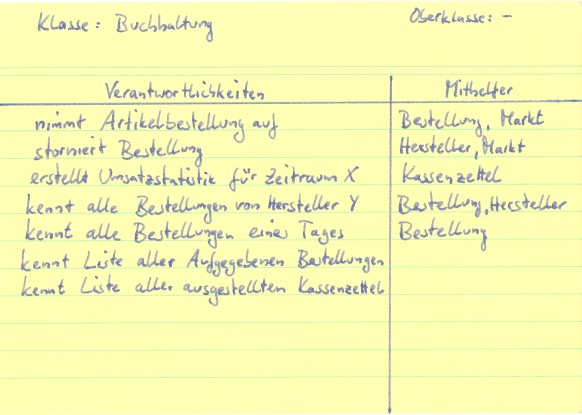 Klasse: Buchhaltung Oberklasse: -
Verantwortlichkeiten Mithelfer
nimmt Artikelbestellung auf Bestellung, Markt
storniert Bestellung Hersteller, Markt
erstellt Umsatzstatistik für Zeitraum X Kassenzettel
kennt alle Bestellungen von Hersteller Y Bestellung, Hersteller
kennt alle Bestellungen eines Tages Bestellung
kennt Liste aller Aufgegebenen Bestellungen
kennt Liste aller ausgestellten Kassenzettel